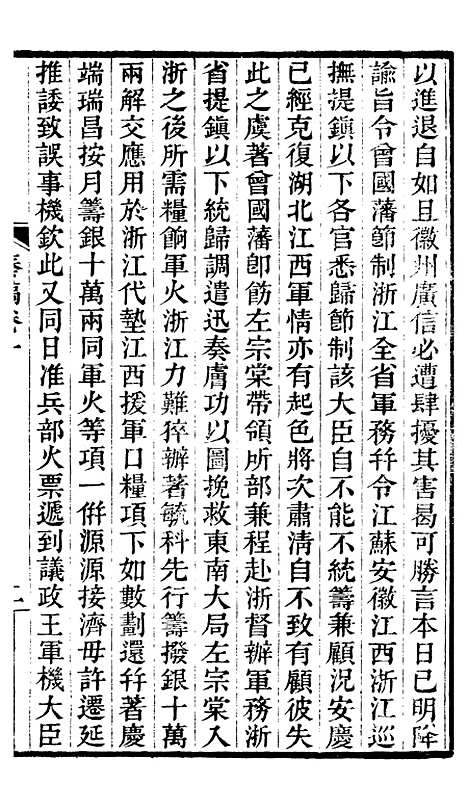 以進退自如且徽州廣信必遭肆擾其害曷可勝言本日已明降
諭旨令曾國藩節制浙江全省軍務幷令江蘇安徽江西浙江巡
撫提鎮以下各官悉歸節制該大臣自不能不統籌兼顧況安慶
已經克復湖北江西軍情亦有起色將次肅淸自不致有顧彼失
此之虞著曾國藩卽飭左宗棠帶領所部兼程赴浙督辦軍務浙
省提鎮以下統歸調遣迅奏膚功以圖挽救東南大局左宗棠入
浙之後所需糧餉軍火浙江力難猝辦著毓科先行籌撥銀十萬
兩解交應用於浙江代墊江西援軍口糧項下如數劃還幷著慶
端瑞昌按月籌銀十萬兩同軍火等項一併源源接濟毋許遷延
推諉致誤事機欽此又同日准兵部火票遞到議政王軍機大臣
奏稿卷一